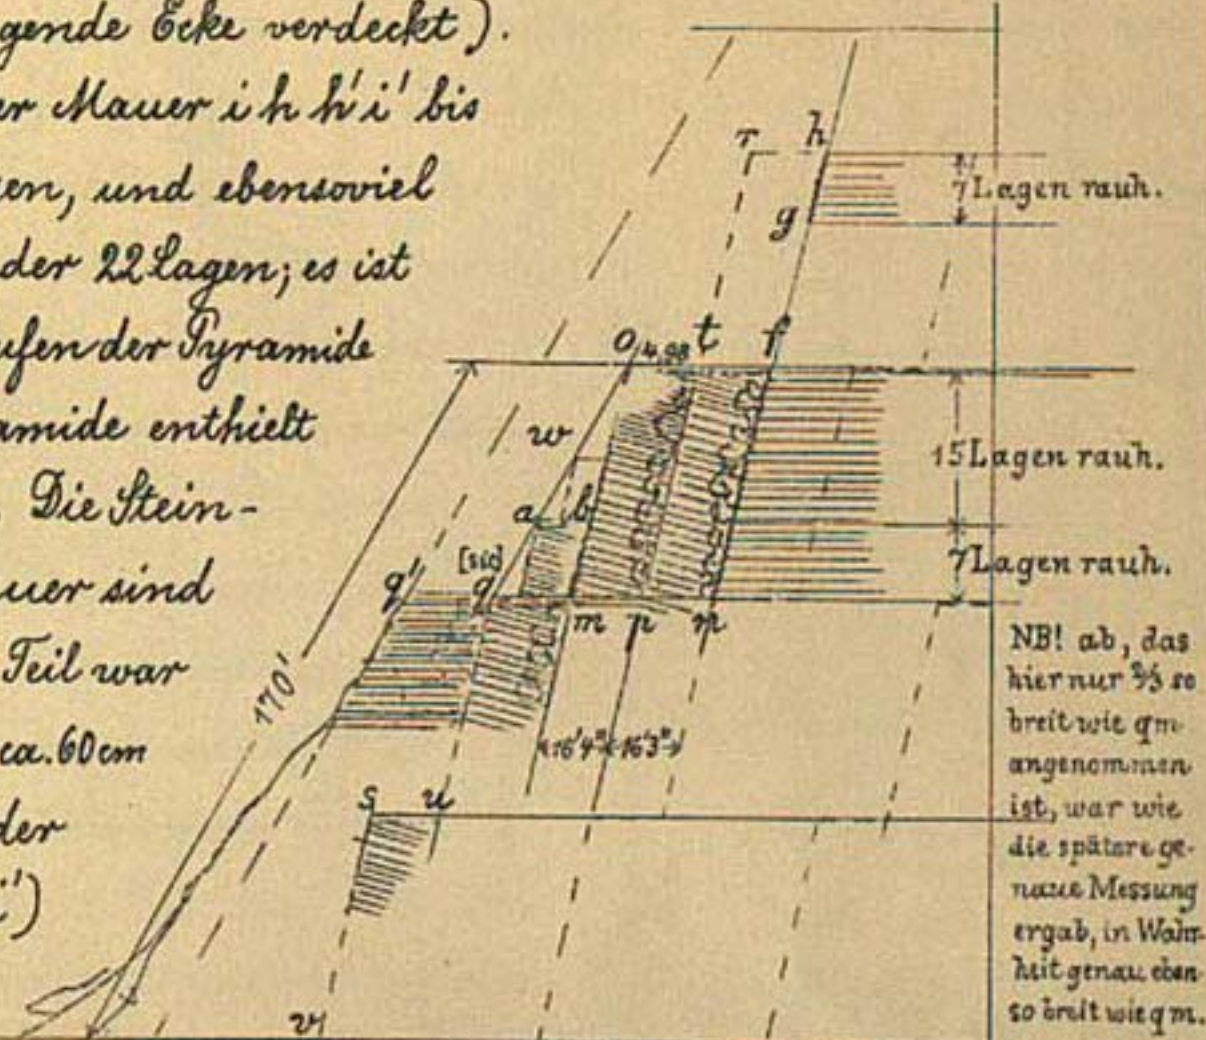 gende Ecke verdeckt).
er Mauer i h h' i' bis
en, und ebensoviel
der 22 Lagen; es ist
ufen der Pyramide
amide enthielt
. Die Stein-
uer sind
Teil war
ca. 60 cm
der
i')
r h
7 Lagen rauh.
g
o 4,98 t f
w
15 Lagen rauh.
a b
[sic]
q' q
7 Lagen rauh.
m p n
170'
16'4" 16'3"
s u
v
NB! ab, das
hier nur 2/3 so
breit wie qm
angenommen
ist, war wie
die spätere ge-
naue Messung
ergab, in Wahr-
heit genau eben
so breit wie qm.